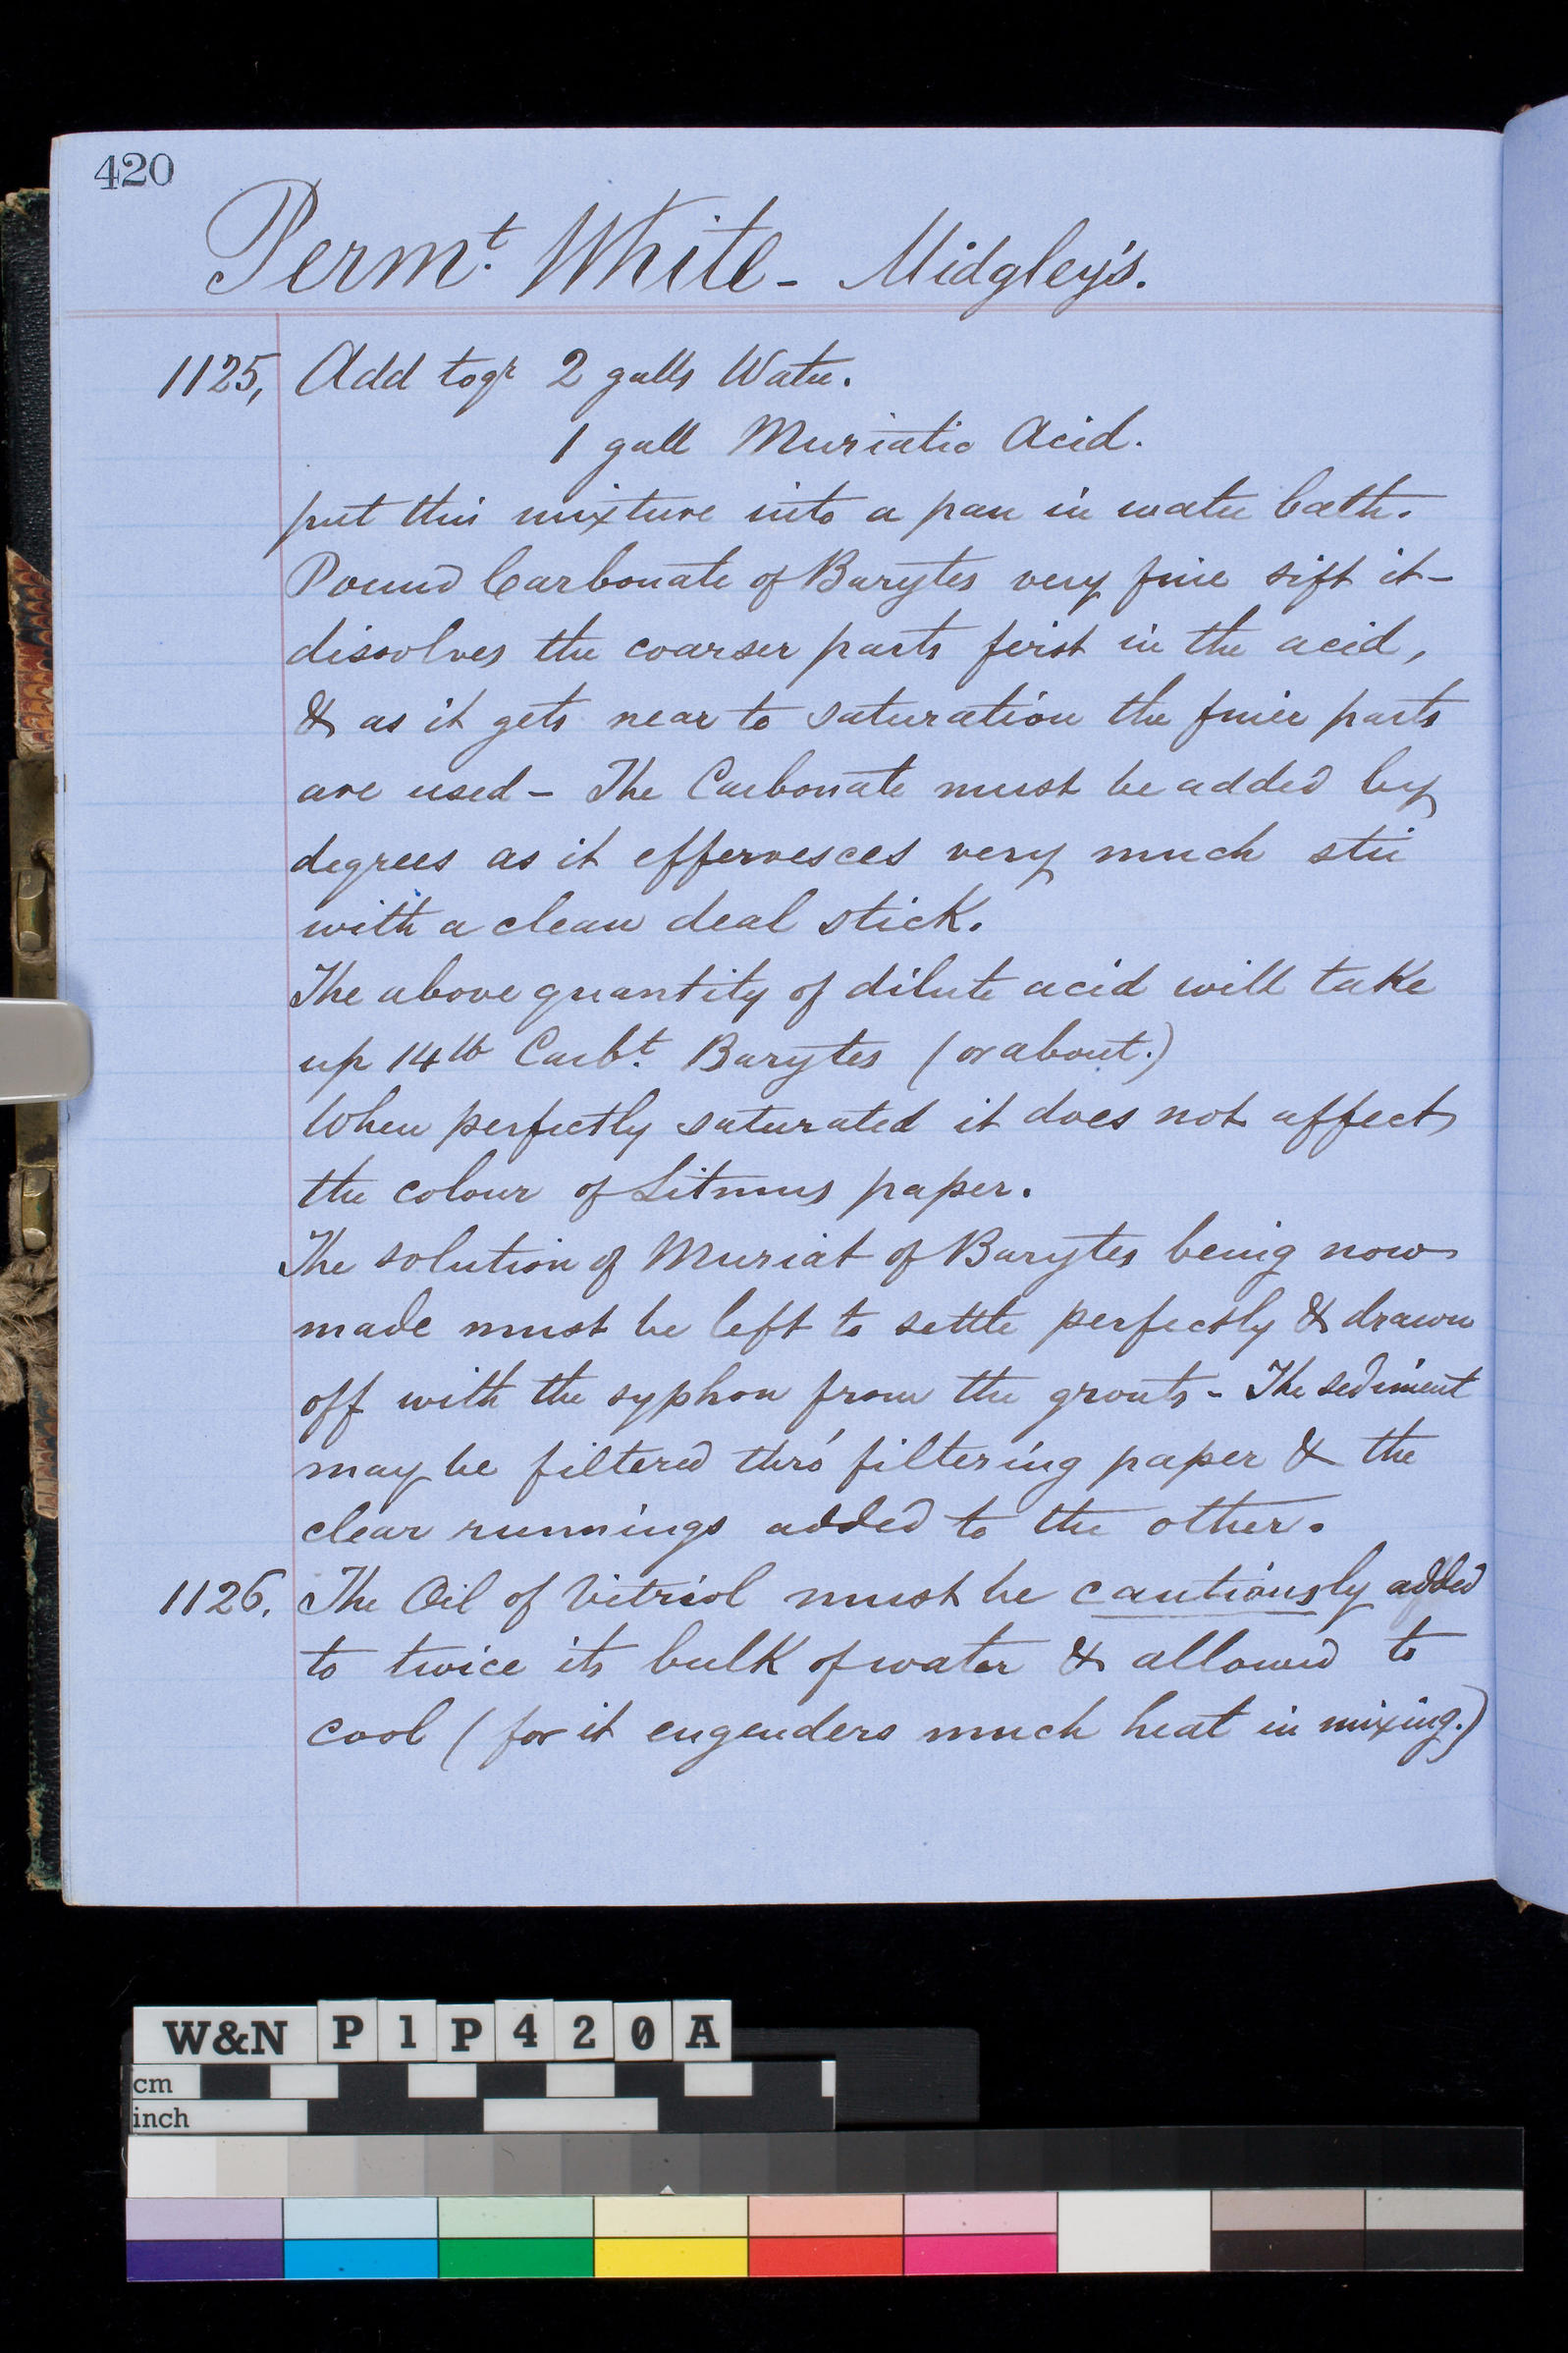 420
Permt. White - Midgley's.
1125, Add togr 2 galls Water.
1 gall Muriatic Acid.
put this mixture into a pan in water bath.
Pound Carbonate of Barytes very fine sift it -
dissolves the coarser parts first in the acid,
& as it gets near to saturation the finer parts
are used - The Carbonate must be added by
degrees as it effervesces very much stir
with a clean deal stick.
The above quantity of dilute acid will take
up 14 lb Carbt. Barytes (or about.)
When perfectly saturated it does not affect
the colour of Litmus paper.
The solution of Muriat of Barytes being now
made must be left to settle perfectly & drawn
off with the syphon from the grouts - The sediment
may be filtered thro' filtering paper & the
clear runnings added to the other.
1126. The Oil of Vitriol must be cautiously added
to twice its bulk of water & allowed to
cool (for it engenders much heat in mixing.)
W&N P1P420A
cm
inch